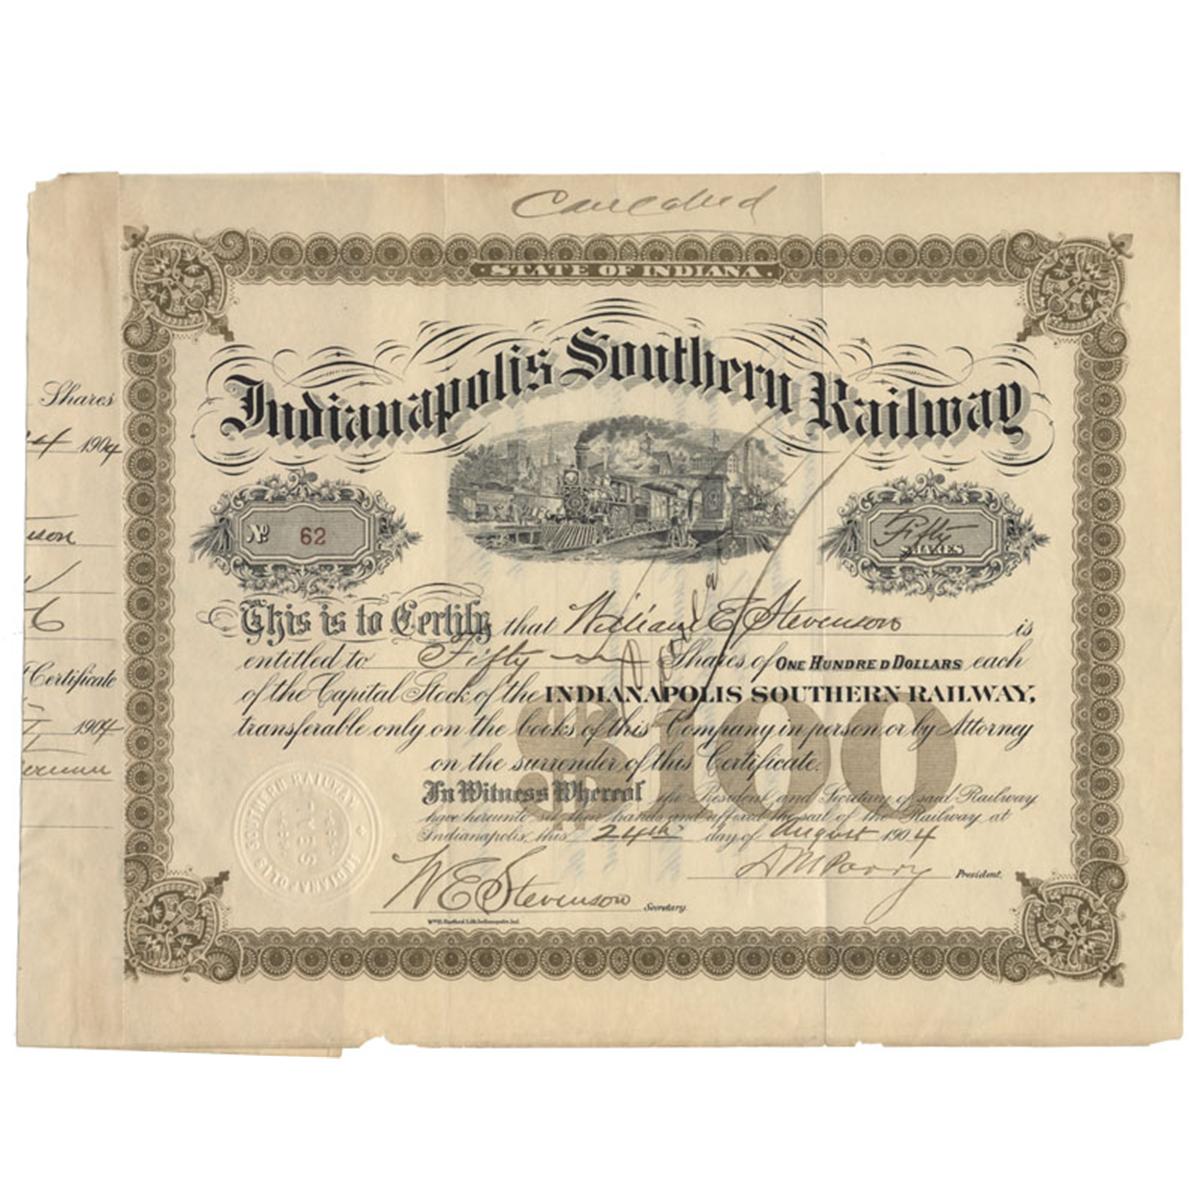 Cancelled
STATE OF INDIANA.
Indianapolis Southern Railway
Shares
24 1904
Nº 62
Fifty
SHARES
This is to Certify that William E Stevenson is
entitled to Fifty Shares of ONE HUNDRED DOLLARS each
of the Capital Stock of the INDIANAPOLIS SOUTHERN RAILWAY,
transferable only on the Books of this Company in person or by Attorney
on the surrender of this Certificate.
$100
Cancelled
In Witness Whereof the President and Secretary of said Railway
have hereunto set their hands and affixed the seal of the Railway at
Indianapolis, this 24th day of August 1904
W E Stevenson Secretary.
D M Parry President.
Wm. B. Burford Lith. Indianapolis Ind.
INDIANAPOLIS SOUTHERN RAILWAY
SEAL
6
Certificate
1904